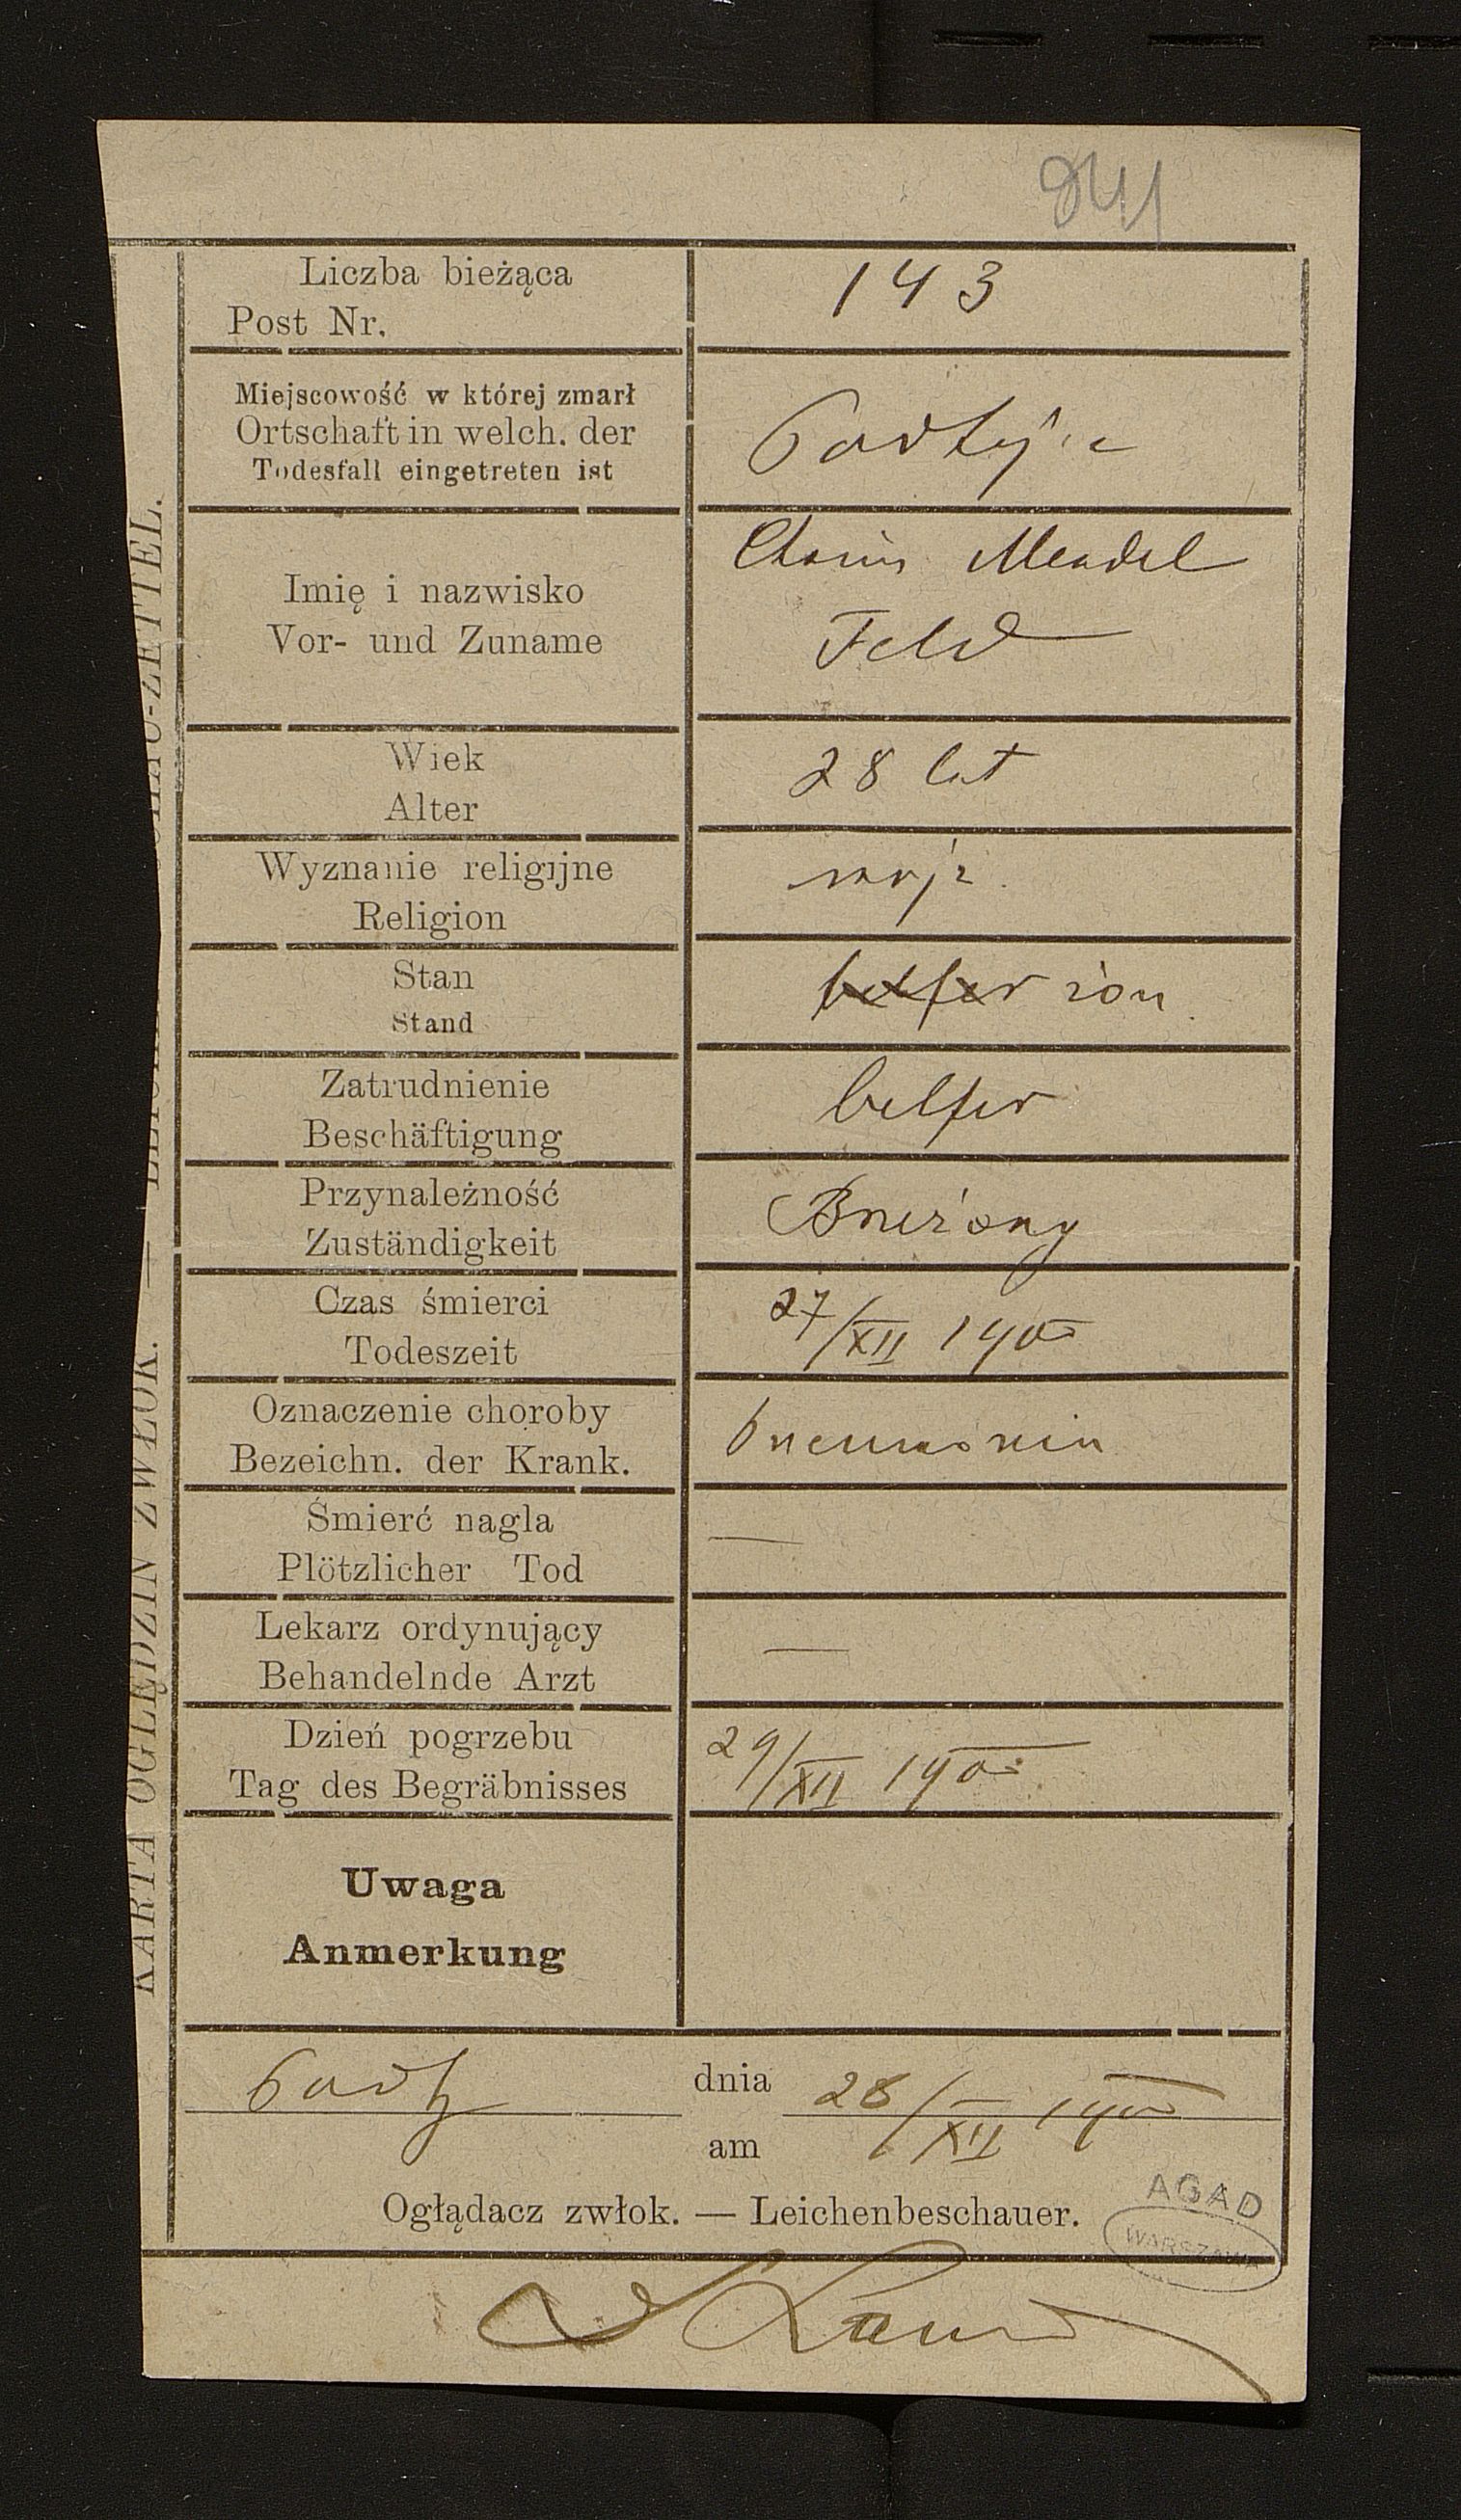 841
Liczba bieżąca
Post Nr.
143
Miejscowość w której zmarł
Ortschaft in welch. der
Todesfall eingetreten ist
Imię i nazwisko
Vor- und Zuname
Chaim Mendel
Feld
Wiek
Alter
28 lat
Wyznanie religijne
Religion
mojż.
Stan
Stand
belfer żon
Zatrudnienie
Beschäftigung
belfer
Przynależność
Zuständigkeit
Brzeżany
Czas śmierci
Todeszeit
27/XII 1900
Oznaczenie choroby
Bezeichn. der Krank.
Pneumonia
Śmierć nagla
Plötzlicher Tod
—
Lekarz ordynujący
Behandelnde Arzt
—
Dzień pogrzebu
Tag des Begräbnisses
29/XII 1900
Uwaga
Anmerkung
dnia
am
28/XII 1900
Oglądacz zwłok. — Leichenbeschauer.
AGAD
WARSZAWA
KARTA OGLĘDZIN ZWŁOK. —